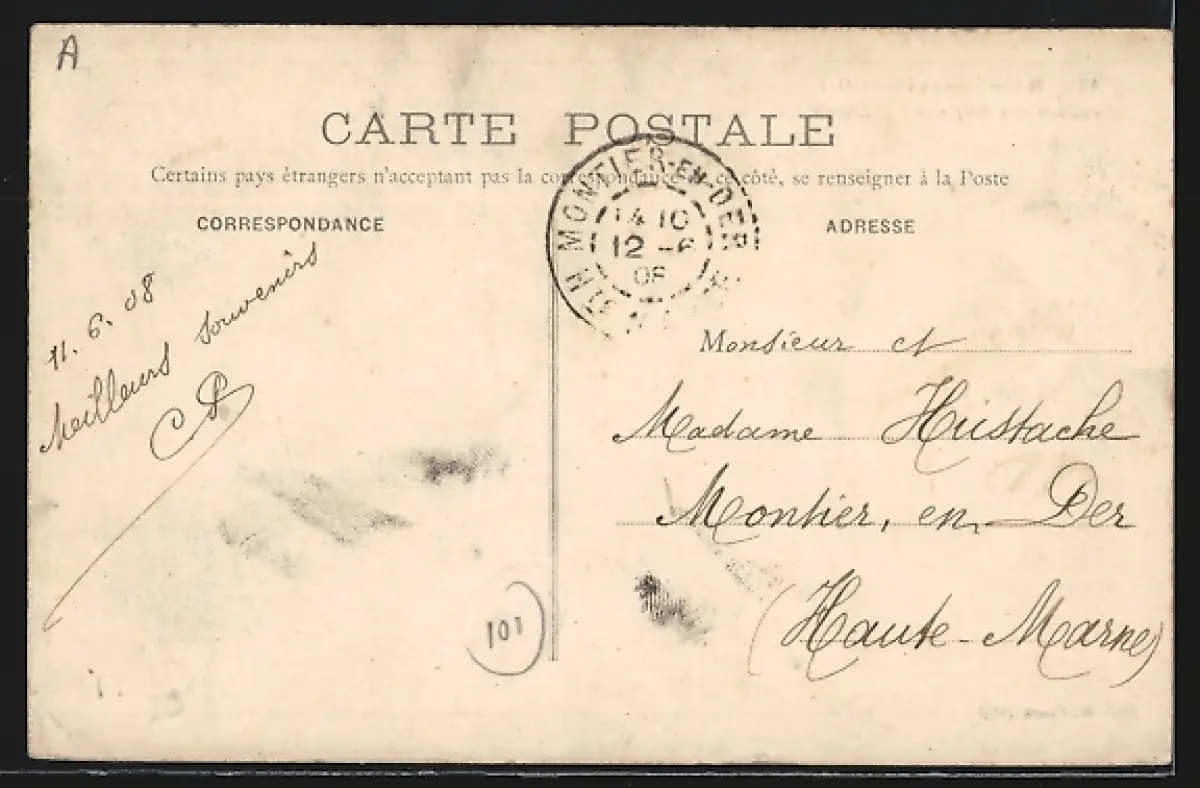 A
CARTE POSTALE
Certains pays étrangers n'acceptant pas la correspondance de ce côté, se renseigner à la Poste
CORRESPONDANCE
ADRESSE
MONTIER-EN-DER
14 10
12 -6
08
Hte MARNE
11. 6. 08
Meilleurs souvenirs
Monsieur et
Madame Hustache
Montier, en, Der
(Haute-Marne)
101